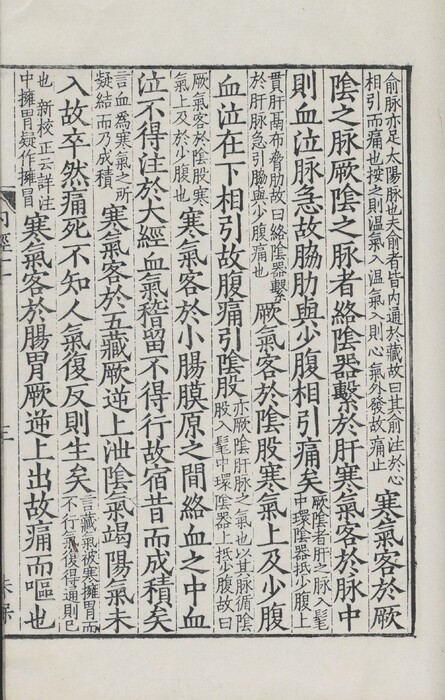 俞脉亦足太陽脉也夫俞者皆内通於藏故曰其俞注於心
相引而痛也按之則温氣入温氣入則心氣外發故痛止
寒氣客於厥
陰之脉厥陰之脉者絡陰器繫於肝寒氣客於脉中
則血泣脉急故脇肋與少腹相引痛矣
厥陰者肝之脉入髦
中環陰器抵少腹上
貫肝鬲布脅肋故曰絡陰器繫
於肝脉急引脇與少腹痛也
厥氣客於陰股寒氣上及少腹
血泣在下相引故腹痛引陰股
亦厥陰肝脉之氣也以其脉循陰
股入髦中環陰器上抵少腹故曰
厥氣客於陰股寒
氣上及於少腹也
寒氣客於小腸膜原之間絡血之中血
泣不得注於大經血氣稽留不得行故宿昔而成積矣
言血為寒氣之所
凝結而乃成積
寒氣客於五藏厥逆上泄陰氣竭陽氣未
入故卒然痛死不知人氣復反則生矣
言藏氣被寒擁胃而
不行氣復得通則已
也 新校正云詳注
中擁胃疑作擁冒
寒氣客於腸胃厥逆上出故痛而嘔也
内經十
三